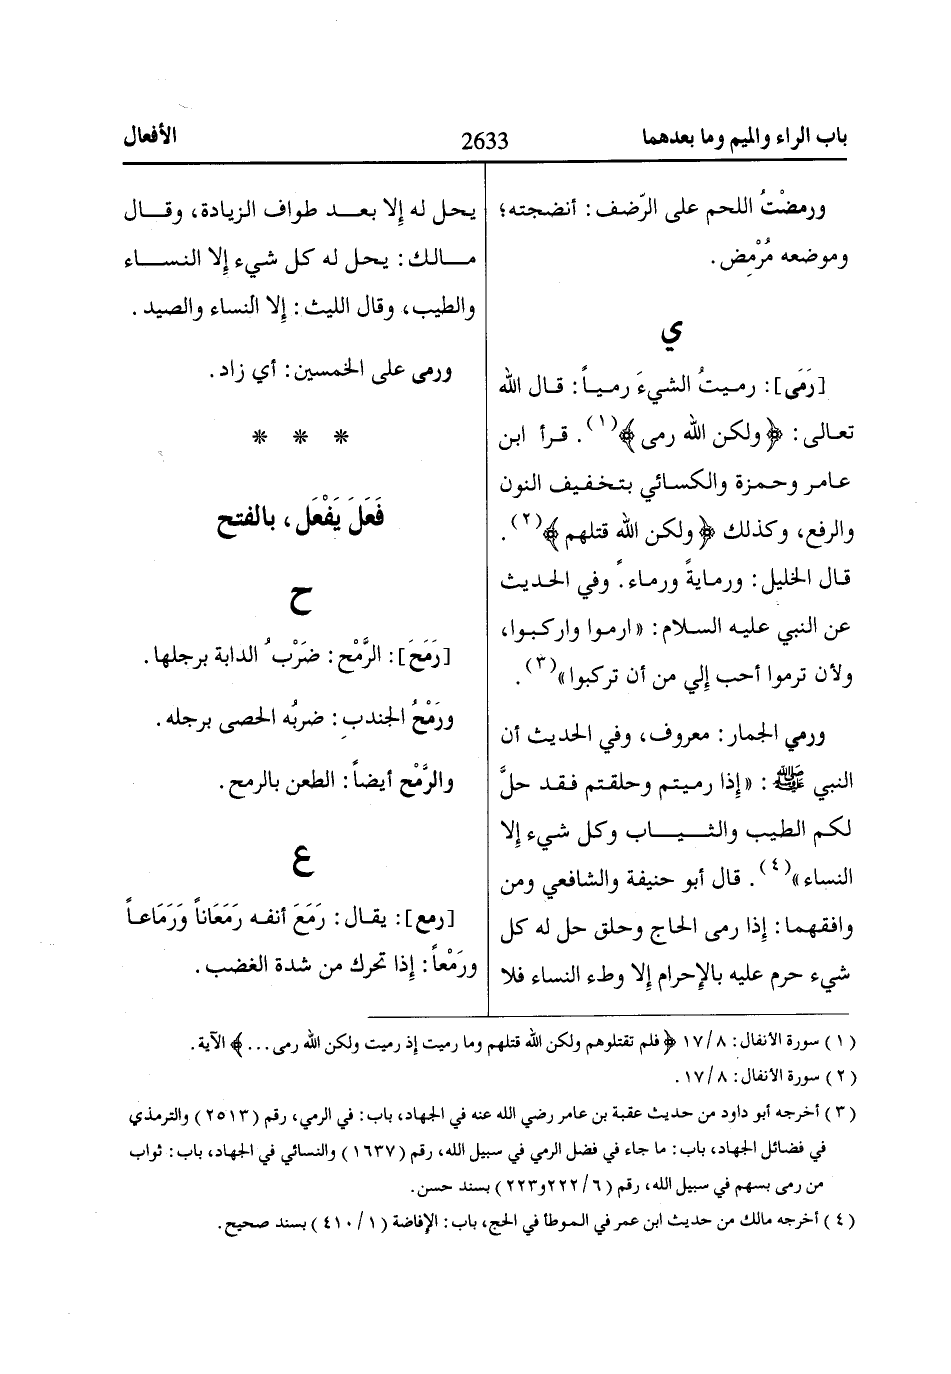 باب الراء والميم وما بعدهما
2633
الأفعال
ورمضْتُ اللحم على الرّضف: أنضجته؛
وموضعه مُرْمِض.
ي
[رَمَى]: رميتُ الشيءَ رمياً: قال الله
تعالى: ﴿ولكن الله رمى﴾(١). قرأ ابن
عامر وحمزة والكسائي بتخفيف النون
والرفع، وكذلك ﴿ولكن الله قتلهم﴾(٢).
قال الخليل: ورمايةً ورماءً. وفي الحديث
عن النبي عليه السلام: «ارموا واركبوا،
ولأن ترموا أحب إلي من أن تركبوا»(٣).
ورمي الجمار: معروف، وفي الحديث أن
النبي ﷺ: «إذا رميتم وحلقتم فقد حلَّ
لكم الطيب والثياب وكل شيء إلا
النساء»(٤). قال أبو حنيفة والشافعي ومن
وافقهما: إذا رمى الحاج وحلق حل له كل
شيء حرم عليه بالإحرام إلا وطء النساء فلا
يحل له إلا بعد طواف الزيادة، وقال
مالك: يحل له كل شيء إلا النساء
والطيب، وقال الليث: إلا النساء والصيد.
ورمى على الخمسين: أي زاد.
* * *
فَعَلَ يَفْعَل، بالفتح
ح
[رَمَحَ]: الرَّمْح: ضَرْبُ الدابة برجلها.
ورَمْحُ الجندب: ضربُه الحصى برجله.
والرَّمْح أيضاً: الطعن بالرمح.
ع
[رمع]: يقال: رَمَعَ أنفه رَمَعَاناً وَرَمَاعاً
ورَمْعاً: إذا تحرك من شدة الغضب.
(١) سورة الأنفال: ١٧/٨ ﴿فلم تقتلوهم ولكن الله قتلهم وما رميت إذ رميت ولكن الله رمى...﴾ الآية.
(٢) سورة الأنفال: ١٧/٨.
(٣) أخرجه أبو داود من حديث عقبة بن عامر رضي الله عنه في الجهاد، باب: في الرمي، رقم (٢٥١٣) والترمذي
في فضائل الجهاد، باب: ما جاء في فضل الرمي في سبيل الله، رقم (١٦٣٧) والنسائي في الجهاد، باب: ثواب
من رمى بسهم في سبيل الله، رقم (٢٢٢/٦و٢٢٣) بسند حسن.
(٤) أخرجه مالك من حديث ابن عمر في الموطأ في الحج، باب: الإفاضة (٤١٠/١) بسند صحيح.